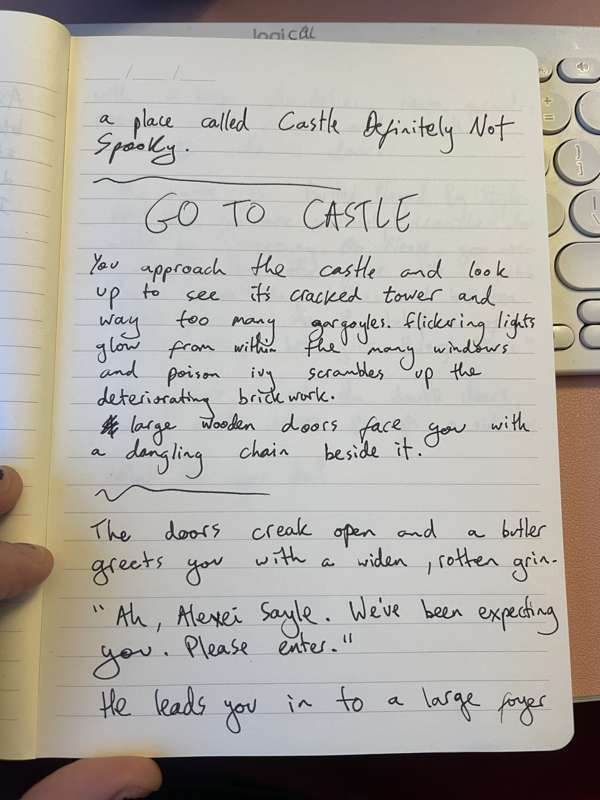 logical
a place called Castle Definitely Not
Spooky.
GO TO CASTLE
You approach the castle and look
up to see it's cracked tower and
way too many gargoyles. flickering lights
glow from within the many windows
and poison ivy scrambles up the
deteriorating brickwork.
large wooden doors face you with
a dangling chain beside it.
The doors creak open and a butler
greets you with a widen, rotten grin.
"Ah, Alexei Sayle. We've been expecting
you. Please enter."
He leads you in to a large foyer